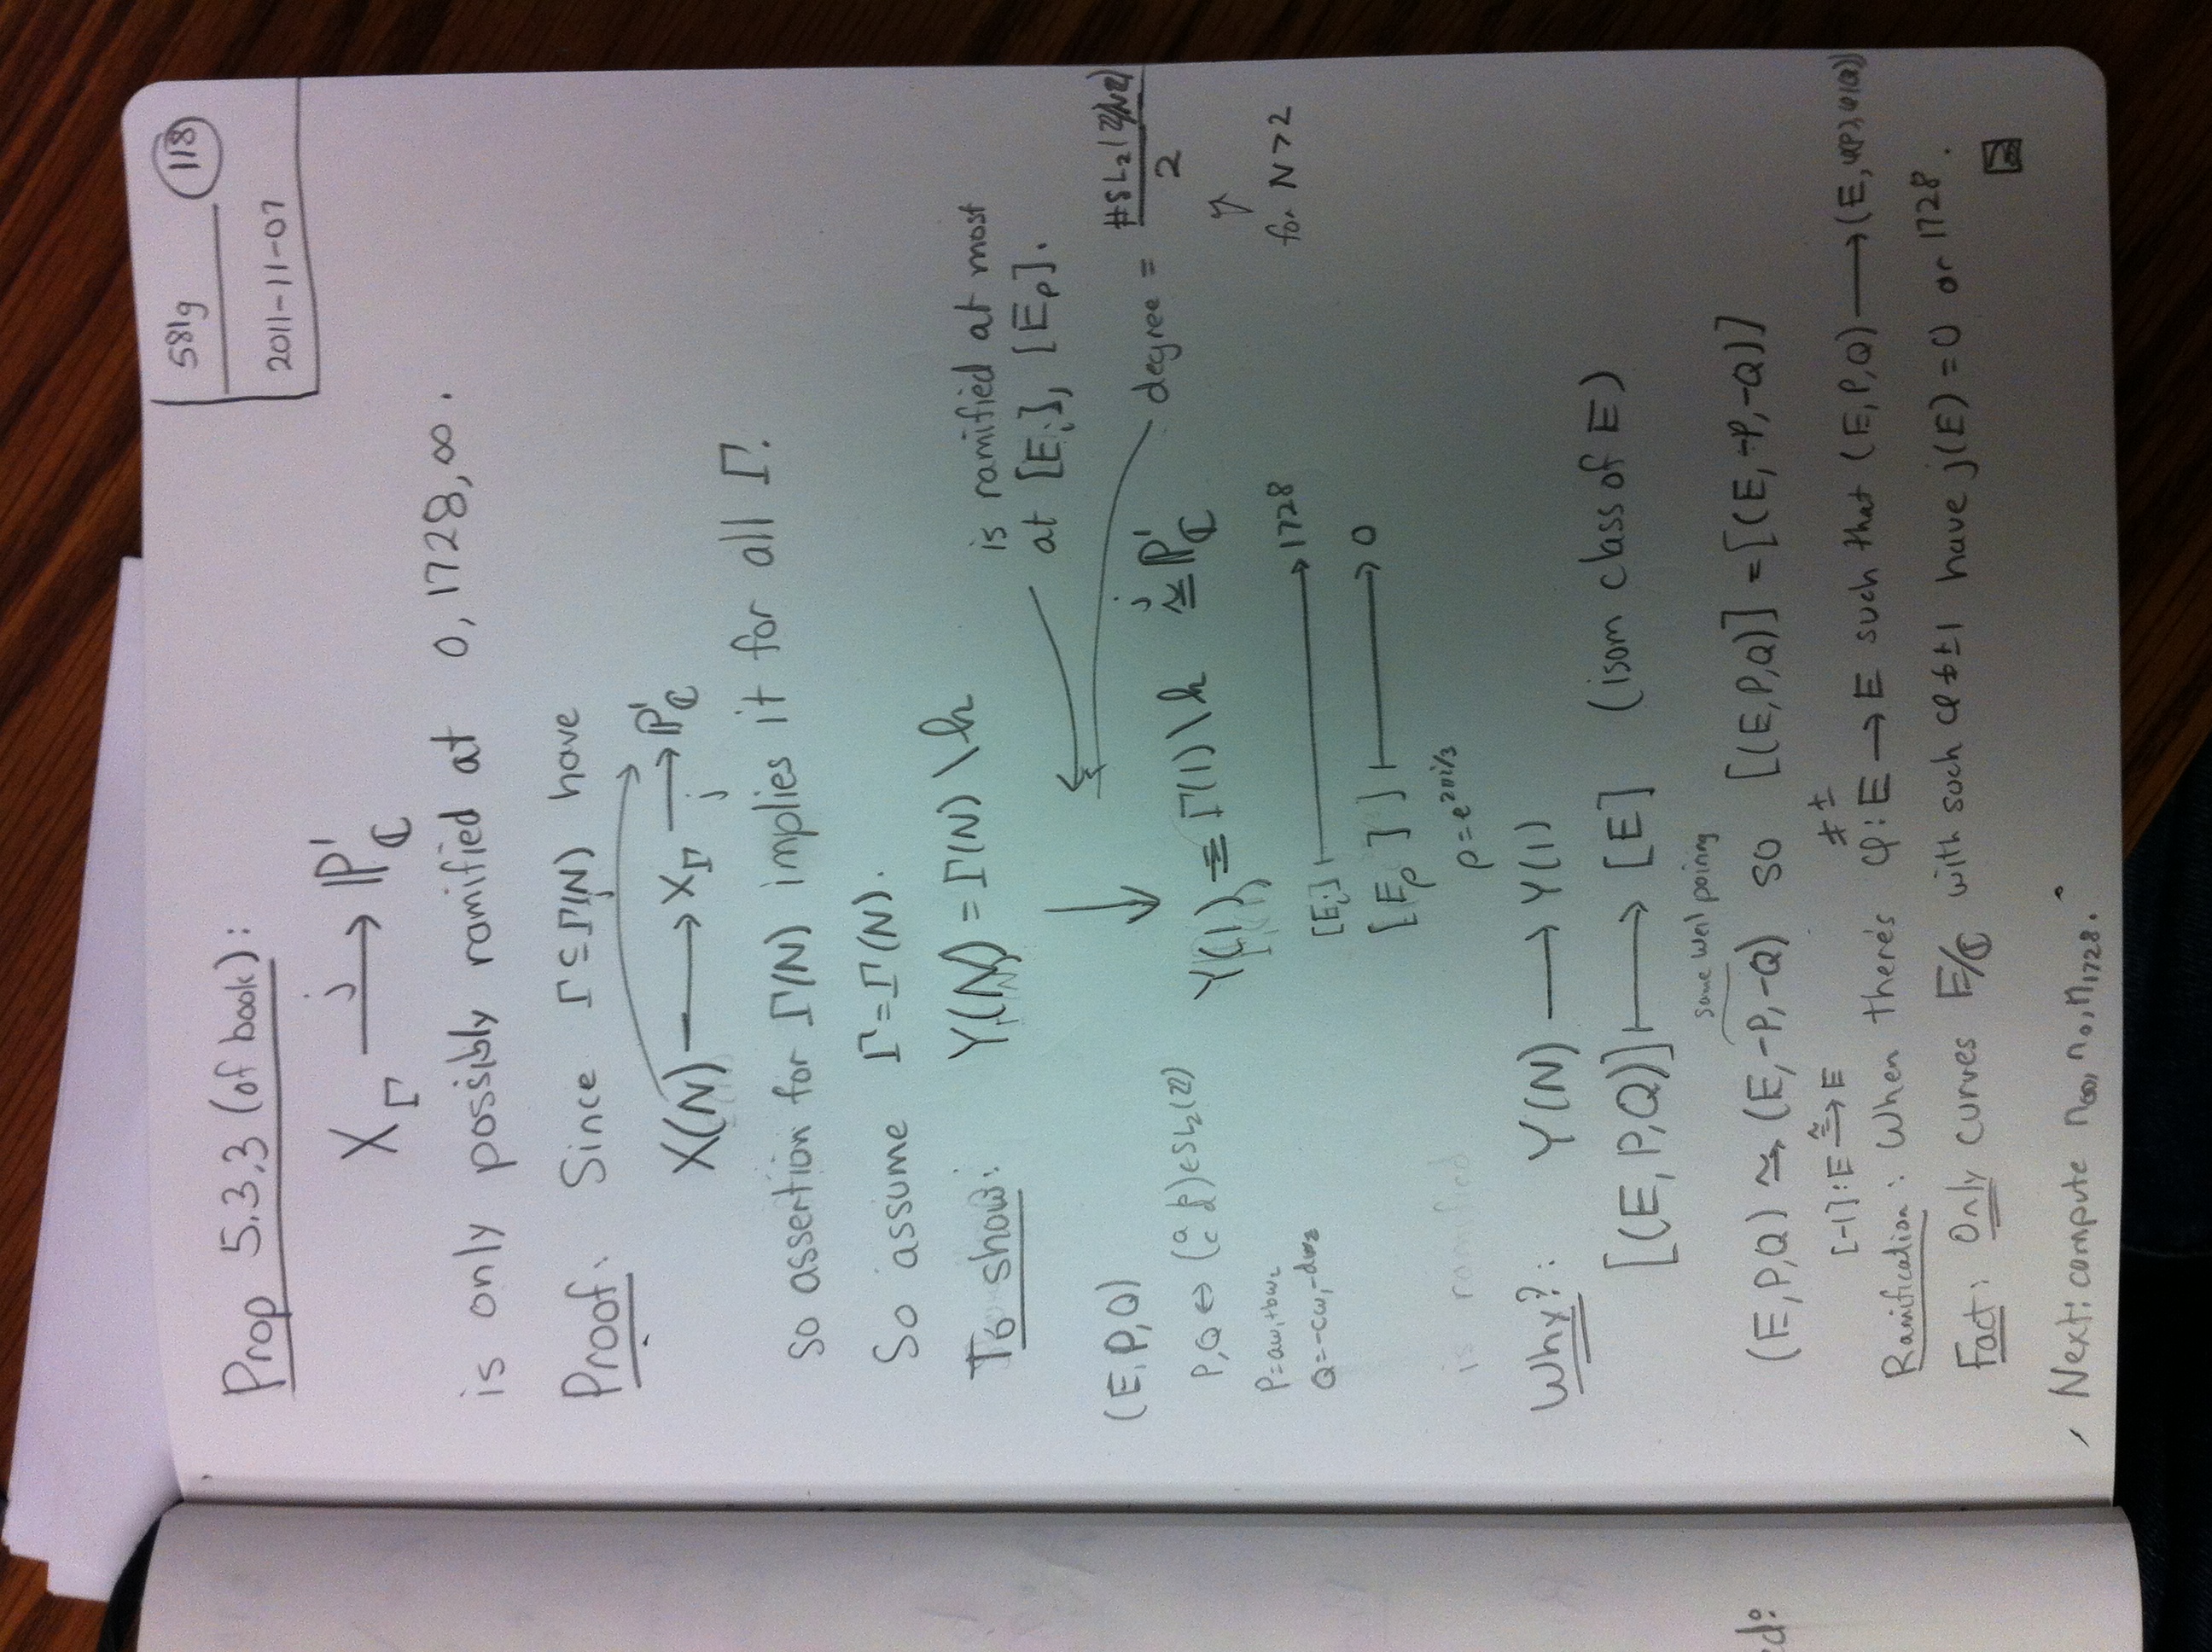 581g 118
2011-11-07
Prop 5.3.3 (of book):
X_Γ —j→ ℙ¹_ℂ
is only possibly ramified at 0, 1728, ∞.
Proof. Since Γ ⊆ Γ(N) have
X(N) → X_Γ —j→ ℙ¹_ℂ
so assertion for Γ(N) implies it for all Γ.
So assume Γ = Γ(N).
To show: Y(N) = Γ(N)\h
is ramified at most
at [E_i], [E_ρ].
degree = #SL₂(ℤ/Nℤ)/2
for N>2
(E,P,Q)
P,Q ↔ (a b; c d) ∈ SL₂(ℤ)
Y(1) = Γ(1)\h ≅^j ℙ¹_ℂ
P=aω₁+bω₂
Q=-cω₁-dω₂
[E_i] ↦ 1728
[E_ρ] ↦ 0
ρ = e^{2πi/3}
is ramified
Why?: Y(N) → Y(1)
[(E,P,Q)] ↦ [E] (isom class of E)
same Weil pairing
(E,P,Q) ≅ (E,-P,-Q) so [(E,P,Q)] = [(E,-P,-Q)]
[-1]: E ≅→ E
≠ ±
Ramification: When there's φ: E → E such that (E,P,Q) → (E, φ(P), φ(Q))
Fact: Only curves E/ℂ with such φ≠±1 have j(E)=0 or 1728.
Next: compute n_∞, n_0, n_1728.
ed: